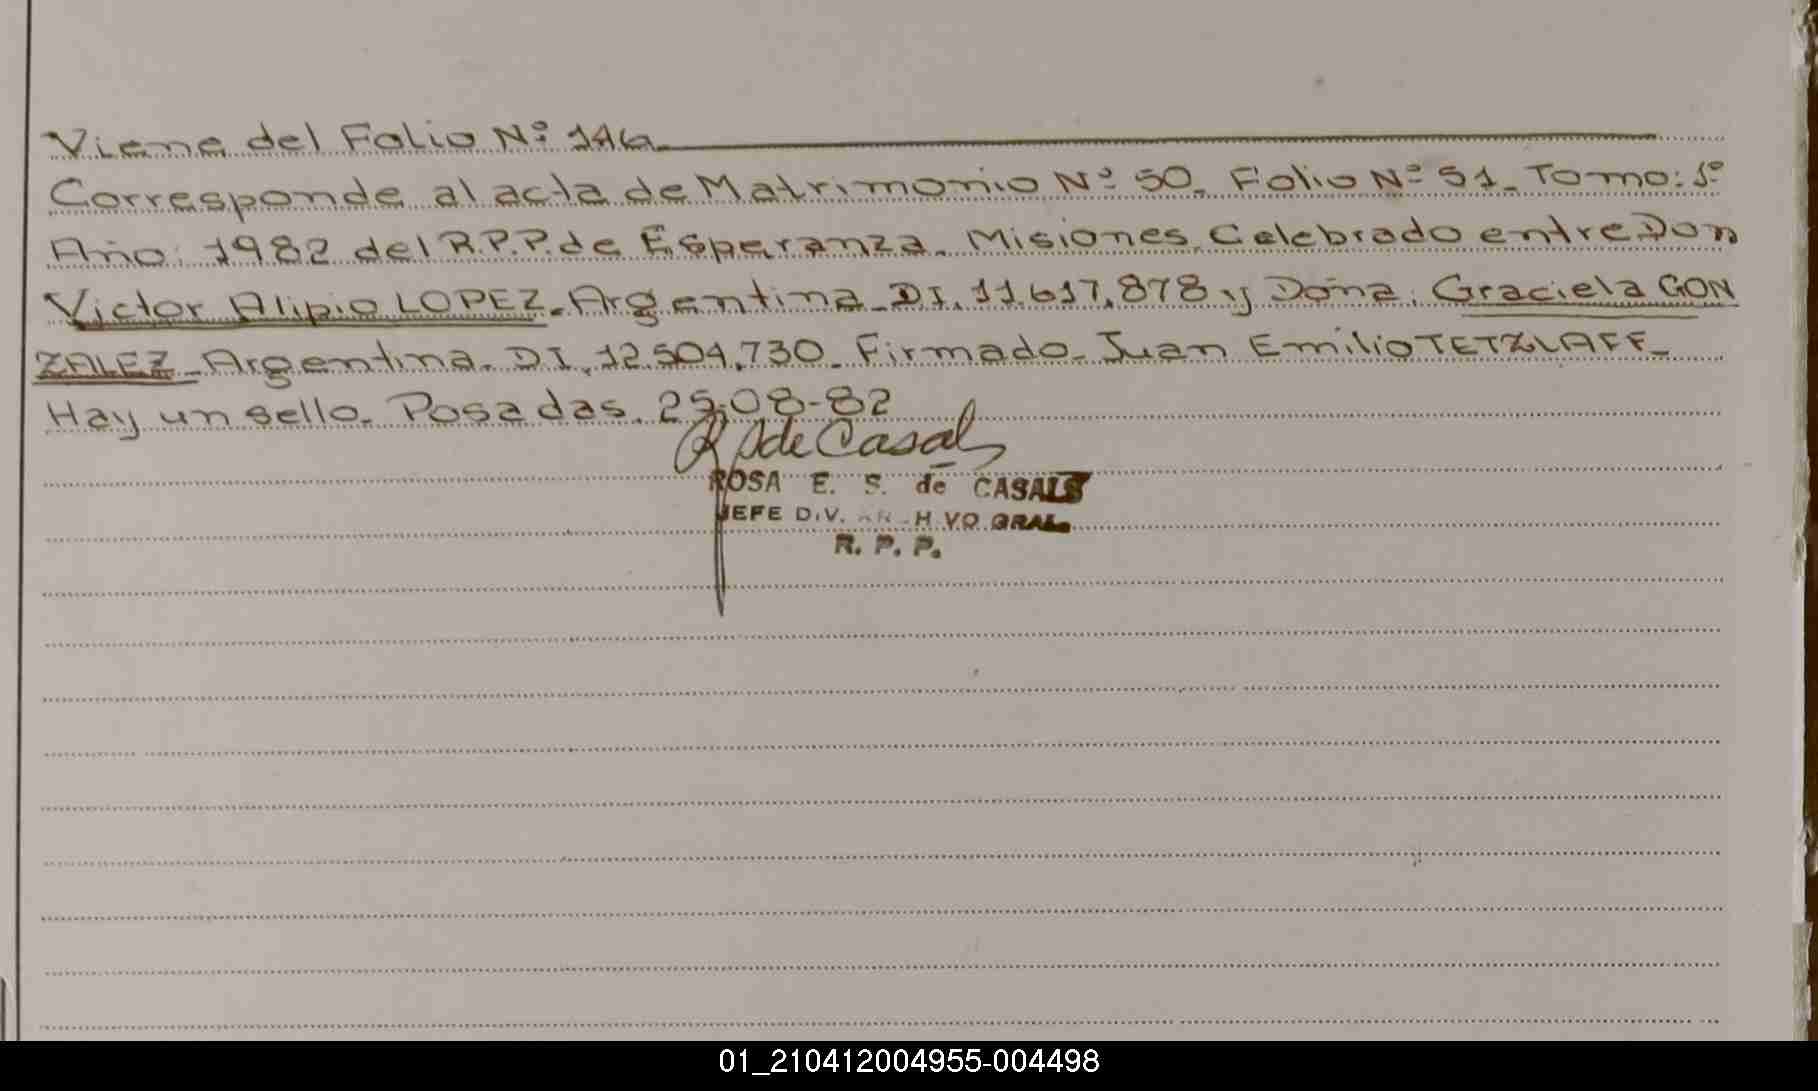 Viene del Folio Nº 146.
Corresponde al acta de Matrimonio Nº 50. Folio Nº 51. Tomo: 1º
Año: 1982 del R.P.P. de Esperanza. Misiones. Celebrado entre Don
Victor Alipio LOPEZ. Argentina. DI. 11.617.878 y Doña. Graciela GON
ZALEZ. Argentina. DI. 12.504.730. Firmado. Juan Emilio TETZLAFF.
Hay un sello. Posadas. 25-08-82
de Casals
ROSA E. S. de CASALS
JEFE DIV. ARCHIVO GRAL.
R. P. P.
01_210412004955-004498